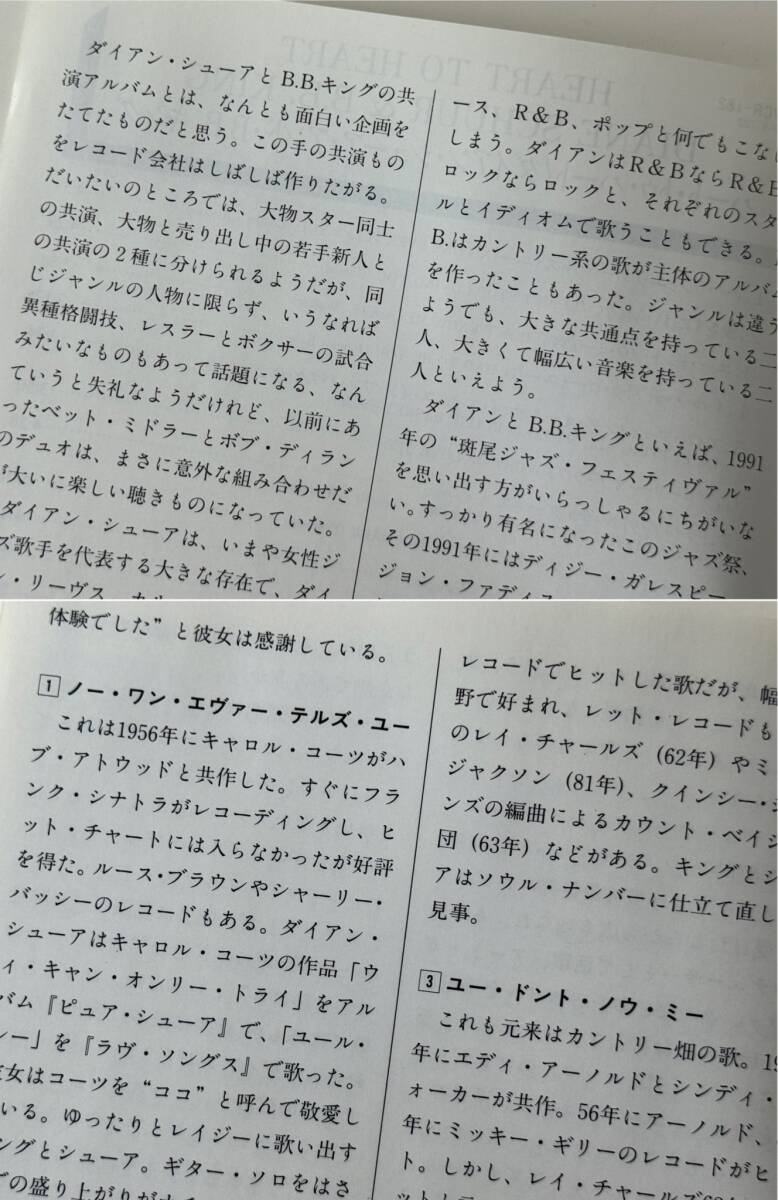 ダイアン・シューアとB.B.キングの共
演アルバムとは、なんとも面白い企画を
たてたものだと思う。この手の共演もの
をレコード会社はしばしば作りたがる。
だいたいのところでは、大物スター同士
の共演、大物と売り出し中の若手新人と
の共演の２種に分けられるようだが、同
じジャンルの人物に限らず、いうなれば
異種格闘技、レスラーとボクサーの試合
みたいなものもあって話題になる、なん
ていうと失礼なようだけれど、以前にあ
ったベット・ミドラーとボブ・ディラン
のデュオは、まさに意外な組み合わせだ
が大いに楽しい聴きものになっていた。
ダイアン・シューアは、いまや女性ジ
ズ歌手を代表する大きな存在で、ダイ
ン・リーヴス
ース、R＆B、ポップと何でもこな
しまう。ダイアンはR＆BならR＆B
ロックならロックと、それぞれのスタ
ルとイディオムで歌うこともできる。
B.はカントリー系の歌が主体のアルバム
を作ったこともあった。ジャンルは違う
ようでも、大きな共通点を持っている二
人、大きくて幅広い音楽を持っている二
人といえよう。
ダイアンとB.B.キングといえば、1991
年の“斑尾ジャズ・フェスティヴァル”
を思い出す方がいらっしゃるにちがいな
い。すっかり有名になったこのジャズ祭、
その1991年にはディジー・ガレスピー
ジョン・ファディス
体験でした”と彼女は感謝している。
1 ノー・ワン・エヴァー・テルズ・ユー
これは1956年にキャロル・コーツがハ
ブ・アトウッドと共作した。すぐにフラ
ンク・シナトラがレコーディングし、ヒ
ット・チャートには入らなかったが好評
を得た。ルース・ブラウンやシャーリー・
バッシーのレコードもある。ダイアン・
シューアはキャロル・コーツの作品「ウ
ィ・キャン・オンリー・トライ」をアル
バム『ピュア・シューア』で、「ユール・
シー」を『ラヴ・ソングス』で歌った。
女はコーツを“ココ”と呼んで敬愛し
いる。ゆったりとレイジーに歌い出す
ングとシューア。ギター・ソロをはさ
の盛り上がりが
レコードでヒットした歌だが、幅
野で好まれ、レット・レコードも
のレイ・チャールズ（62年）やミ
ジャクソン（81年）、クインシー・ジ
ンズの編曲によるカウント・ベイシ
団（63年）などがある。キングとシ
アはソウル・ナンバーに仕立て直し
見事。
3 ユー・ドント・ノウ・ミー
これも元来はカントリー畑の歌。19
年にエディ・アーノルドとシンディ・
ォーカーが共作。56年にアーノルド、
年にミッキー・ギリーのレコードがヒ
ト。しかし、レイ・チャールズ